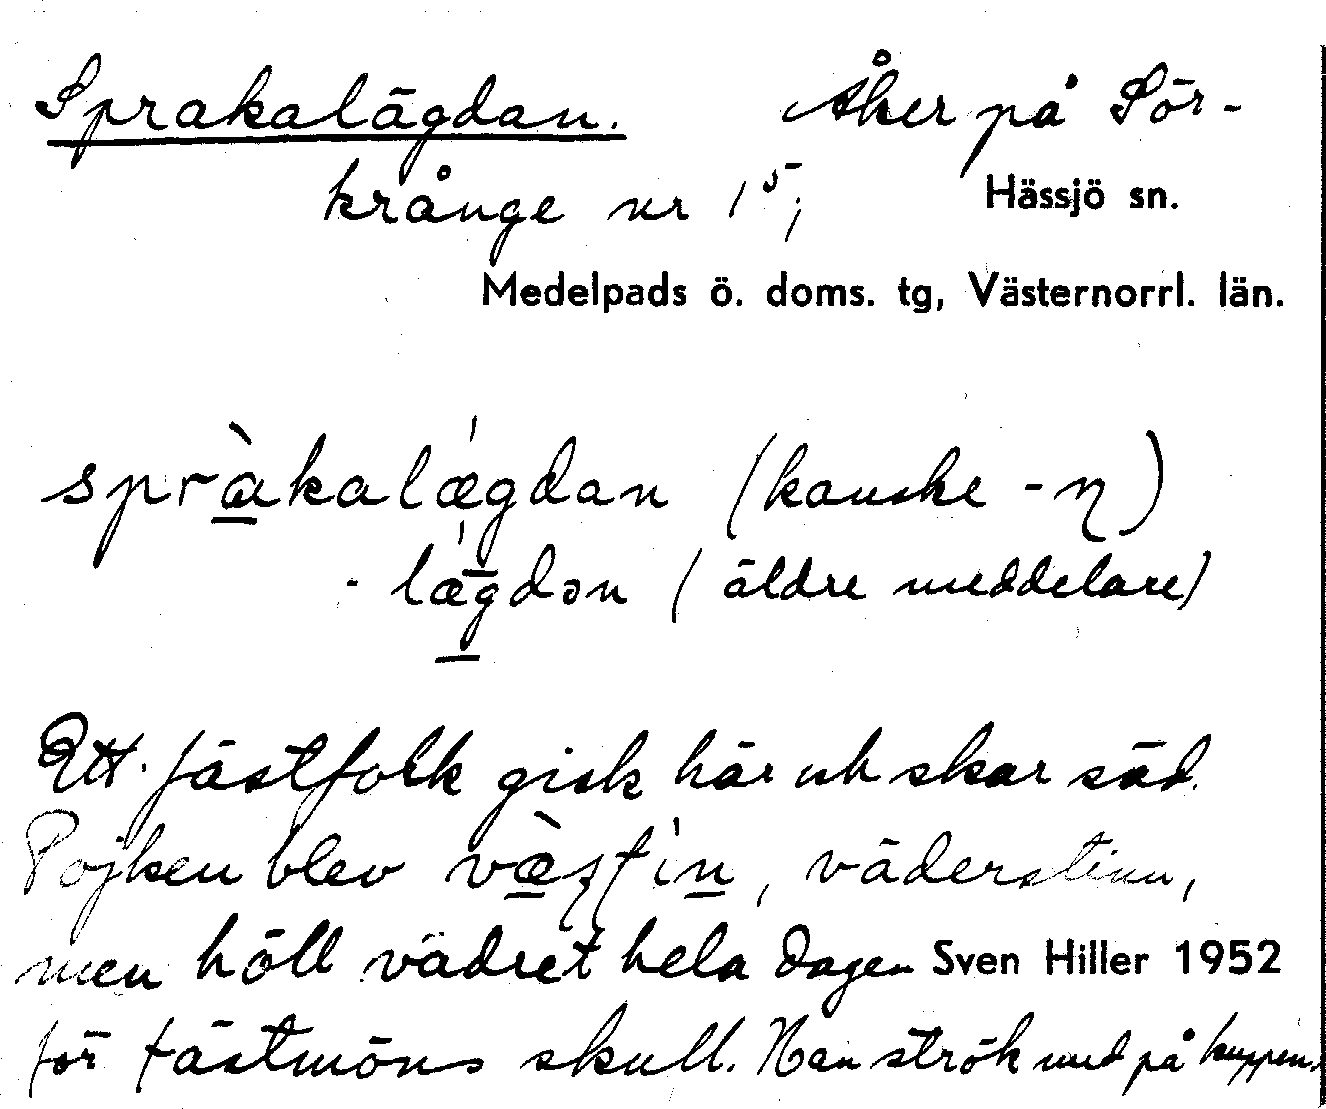 Sprakalägdan. Åker på Sör-
krånge nr 15,
Hässjö sn.
Medelpads ö. doms. tg, Västernorrl. län.
spràkalǽgdan (kanske -η)
-lǽgdən (äldre meddelare)
Ett fästfolk gick här och skar säd.
Pojken blev , väderstinn,
men höll vädret hela dagen
Sven Hiller 1952
för fästmöns skull. Han strök med på kuppen.